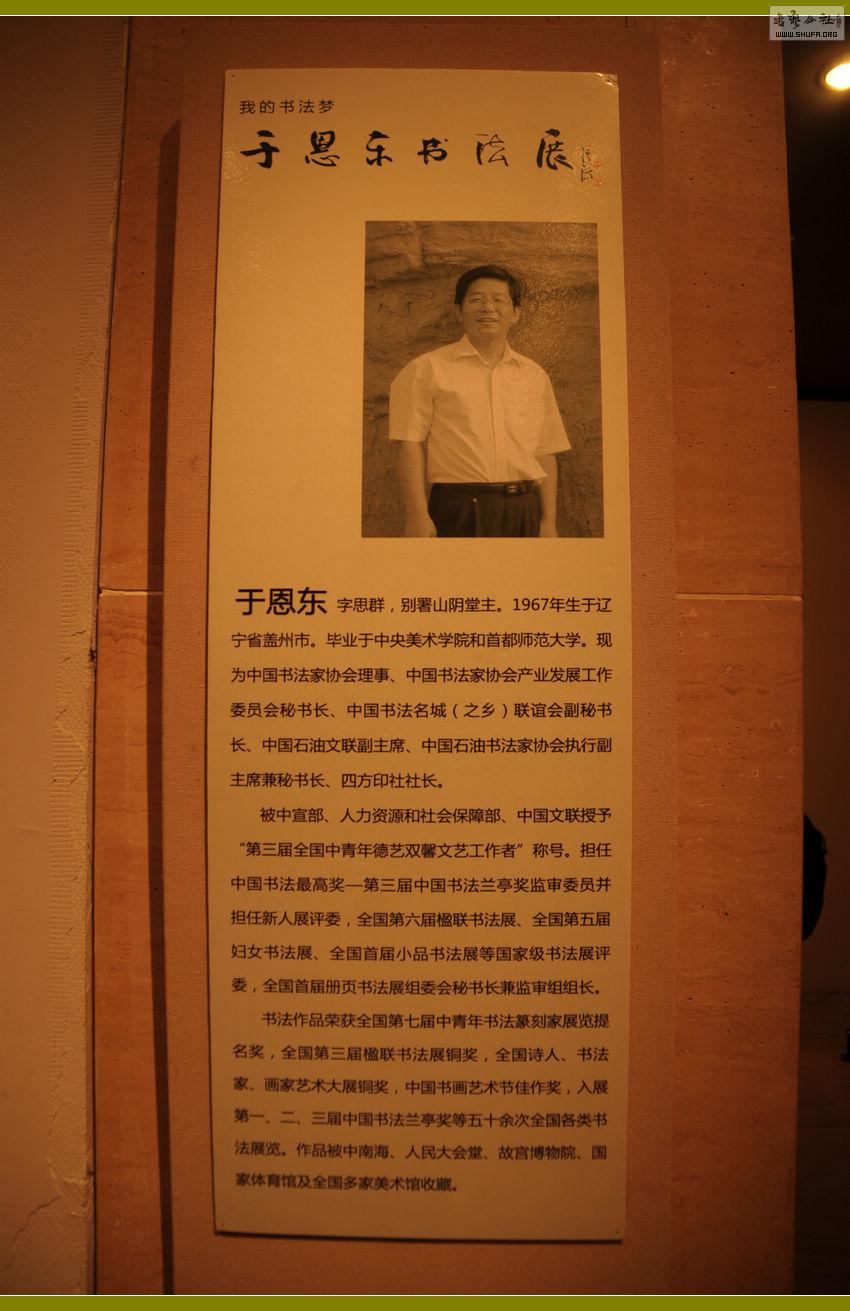 WWW.SHUFA.ORG
我的书法梦
于恩东书法展
于恩东 字思群，别署山阴堂主。1967年生于辽
宁省盖州市。毕业于中央美术学院和首都师范大学。现
为中国书法家协会理事、中国书法家协会产业发展工作
委员会秘书长、中国书法名城（之乡）联谊会副秘书
长、中国石油文联副主席、中国石油书法家协会执行副
主席兼秘书长、四方印社社长。
被中宣部、人力资源和社会保障部、中国文联授予
“第三届全国中青年德艺双馨文艺工作者”称号。担任
中国书法最高奖—第三届中国书法兰亭奖监审委员并
担任新人展评委，全国第六届楹联书法展、全国第五届
妇女书法展、全国首届小品书法展等国家级书法展评
委，全国首届册页书法展组委会秘书长兼监审组组长。
书法作品荣获全国第七届中青年书法篆刻家展览提
名奖，全国第三届楹联书法展铜奖，全国诗人、书法
家、画家艺术大展铜奖，中国书画艺术节佳作奖，入展
第一、二、三届中国书法兰亭奖等五十余次全国各类书
法展览。作品被中南海、人民大会堂、故宫博物院、国
家体育馆及全国多家美术馆收藏。